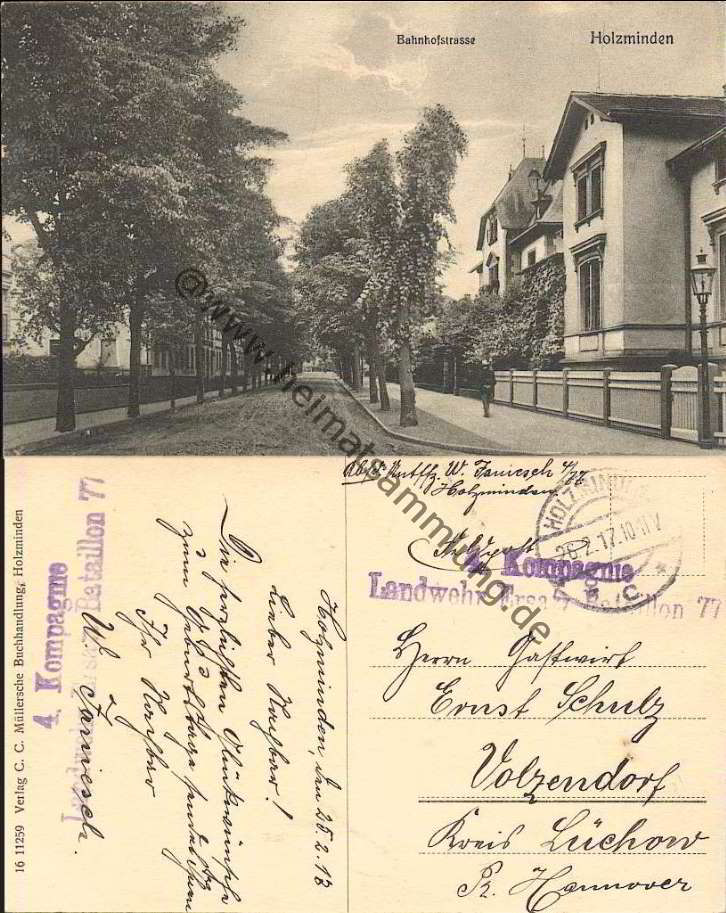 Bahnhofstrasse
Holzminden
@www.heimatsammlung.de
Abs. Untffz. W. Janiesch 4/77
Holzminden
Feldpost
HOLZMINDEN
26.2.17.10-11V
* C. *
4. Kompagnie
Landwehr-Ersatz-Bataillon 77
Herrn Gastwirt
Ernst Schulz
Volzendorf
Kreis Lüchow
Pr. Hannover
Holzminden, den 25.2.17
Lieber Nachbar!
Die herzlichsten Glückwünsche
zum Geburtstage sendet Ihnen
Ihr Nachbar
W. Janiesch.
4. Kompagnie
Landwehr-Ersatz-Bataillon 77
16 11259 Verlag C. C. Müllersche Buchhandlung, Holzminden